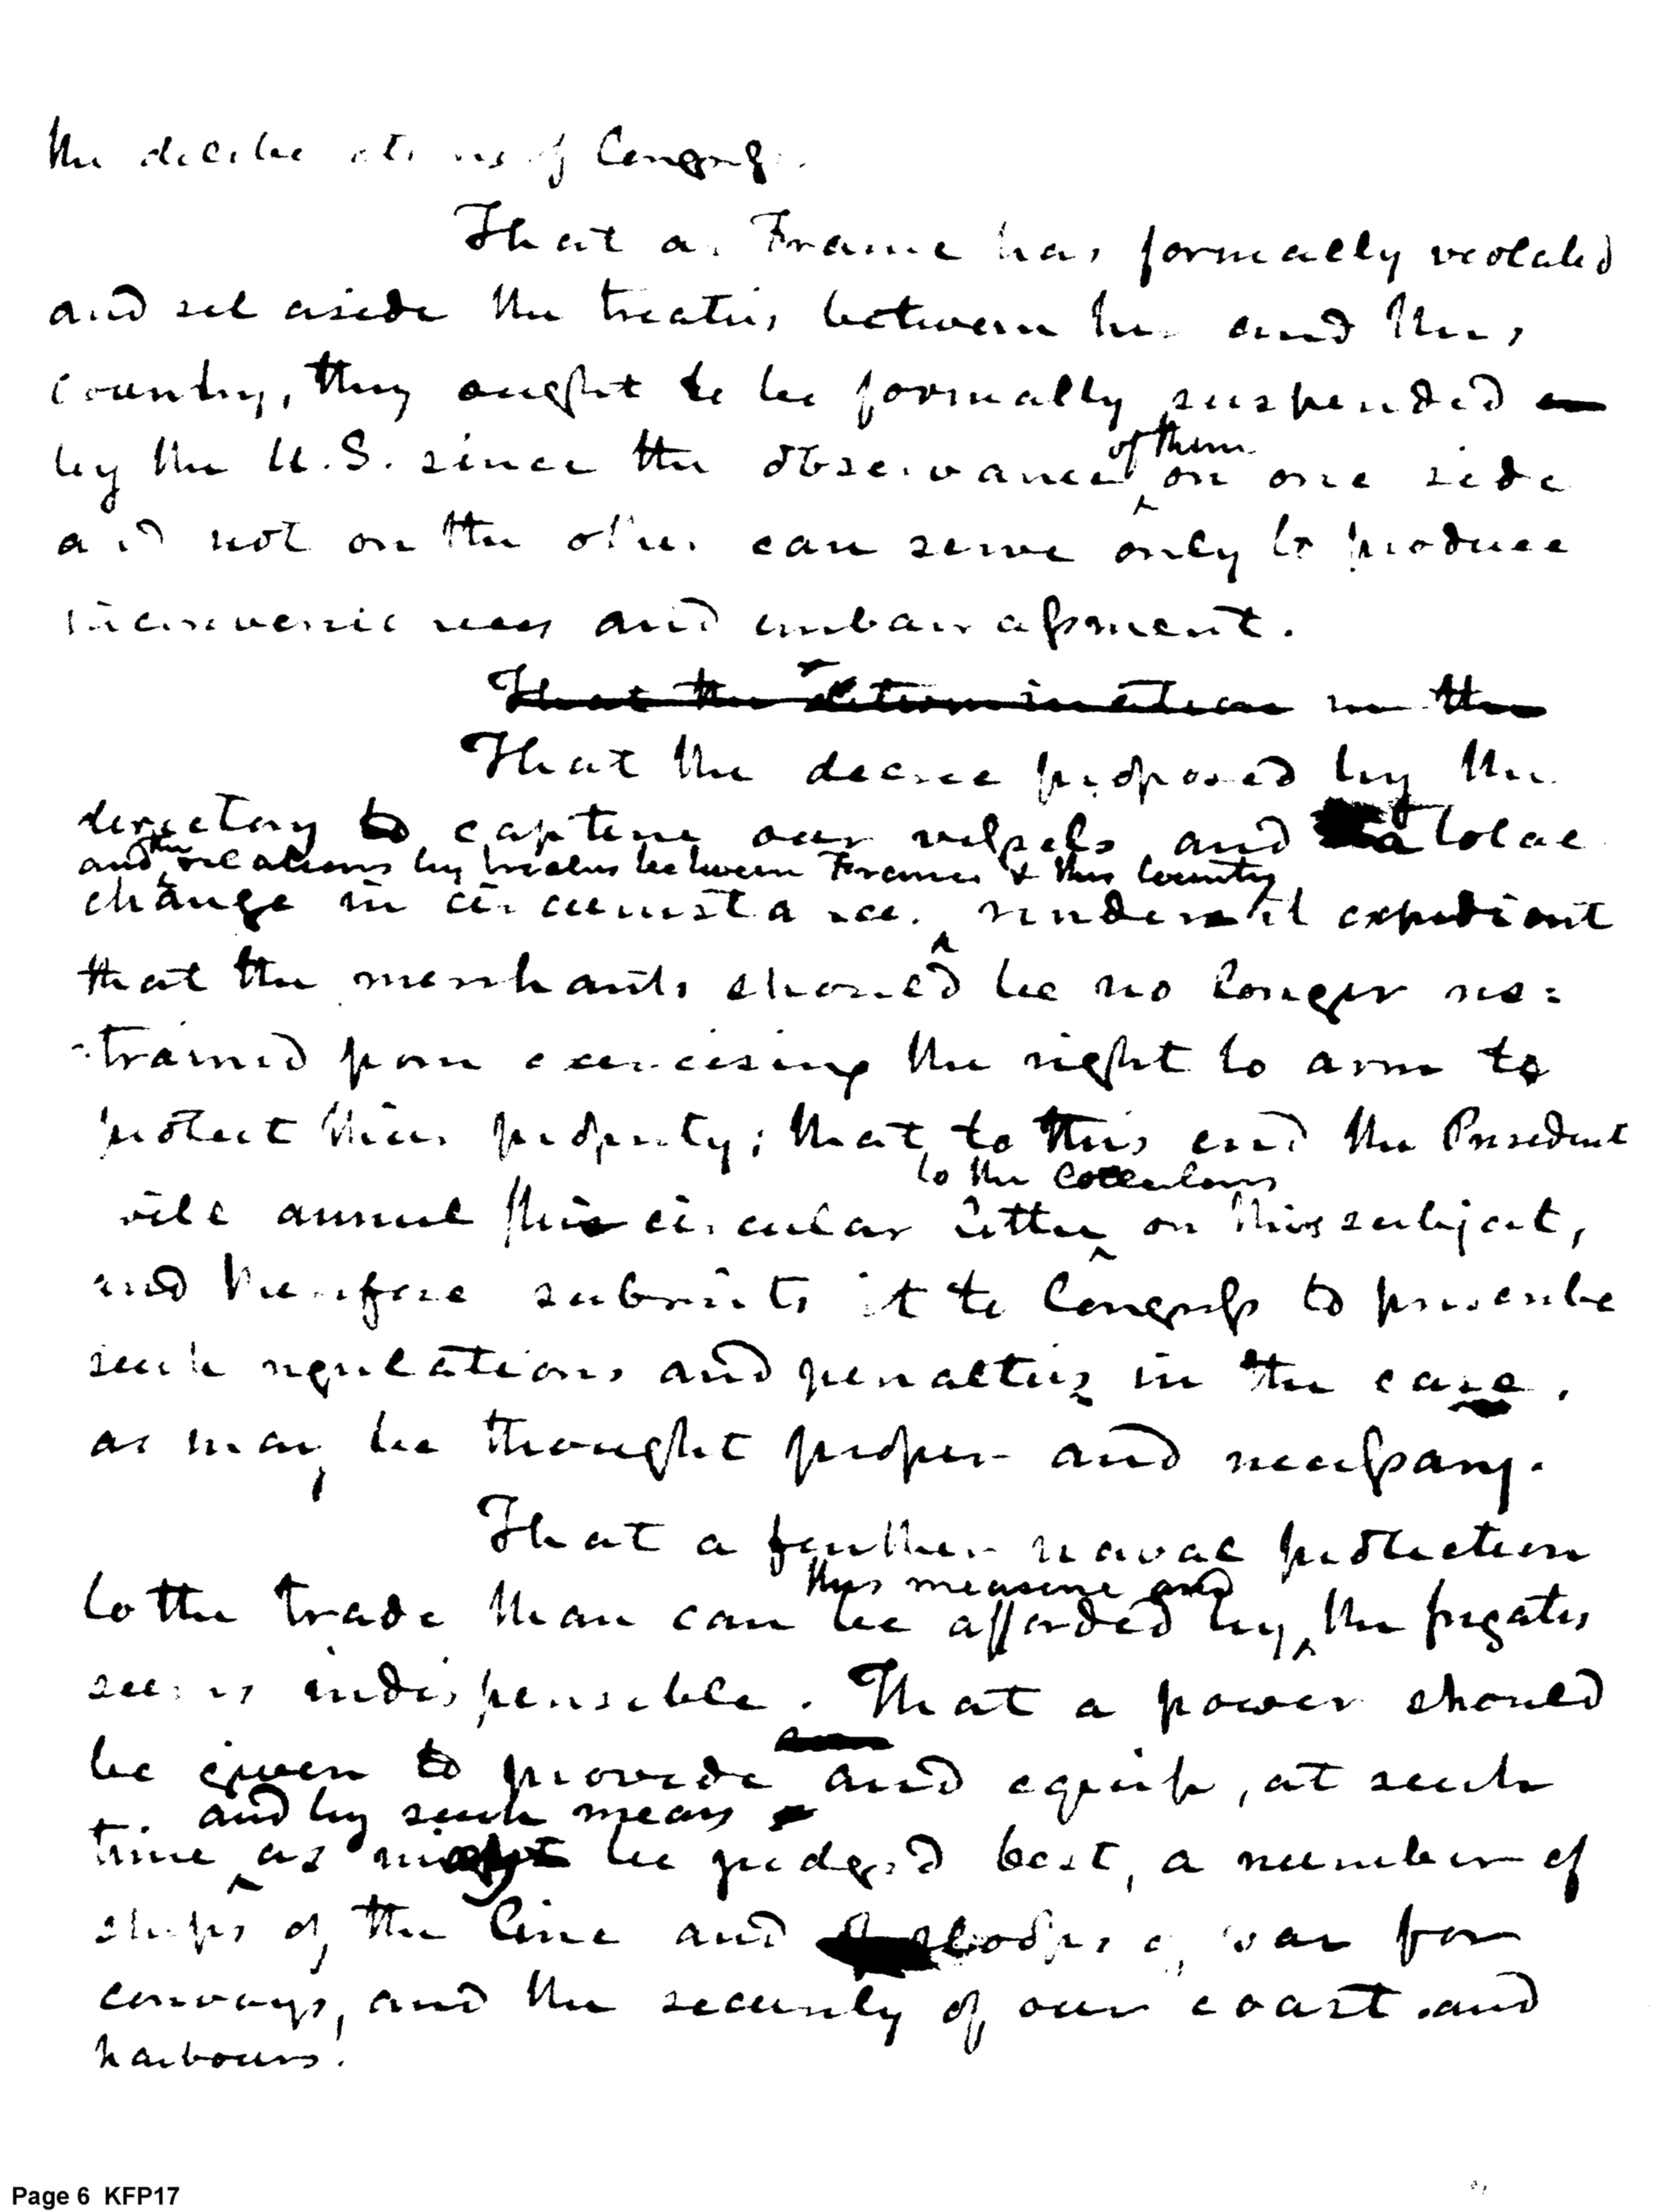 the deliberations of Congress.
That as France has formally violated
and set aside the treaties between her and this
country, they ought to be formally suspended
of them
by the U.S. since the observance on one side
and not on the other can serve only to produce
inconveniences and embarrassment.
That the determination in the
That the decree proposed by the
directory to capture our vessels and a total
and the relations by treaties between France & this Country
change in circumstances renders it expedient
that the merchants should be no longer res=
-trained from exercising the right to arm to
protect their property; that to this end the President
to the Collectors
will annul his circular letter on this subject,
and therefore submits it to Congress to prescribe
such regulations and penalties in the case,
as may be thought proper and necessary.
That a further naval protection
this measure and
to the trade than can be afforded by the frigates
seems indispensible. That a power should
be given to provide and equip, at such
and by such means
time as may be judged best, a number of
ships of the line and sloops of war for
convoys, and the security of our coast and
harbours.
Page 6 KFP17